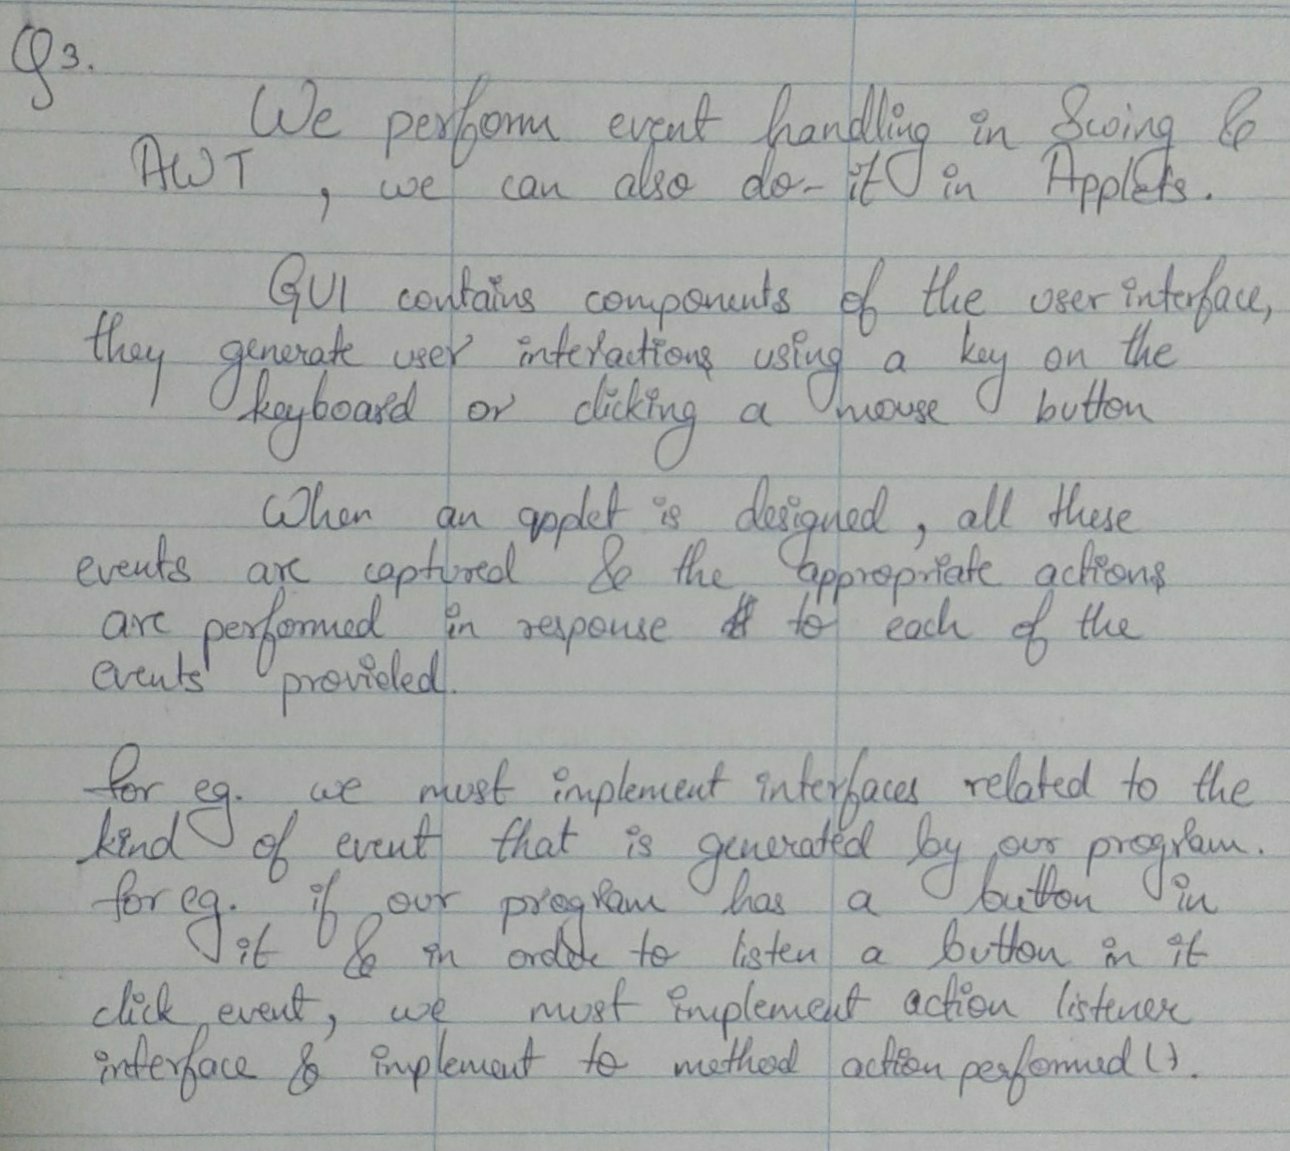 Q3.
We perform event handling in Swing &
AWT , we can also do it in Applets.
GUI contains components of the user interface,
they generate user interactions using a key on the
keyboard or clicking a mouse button
When an applet is designed, all these
events are captured & the appropriate actions
are performed in response to each of the
events provided.
for eg. we must implement interfaces related to the
kind of event that is generated by our program.
for eg. if our program has a button in
it & in ordde to listen a button in it
click event, we must implement action listener
interface & implement to method action performed ().